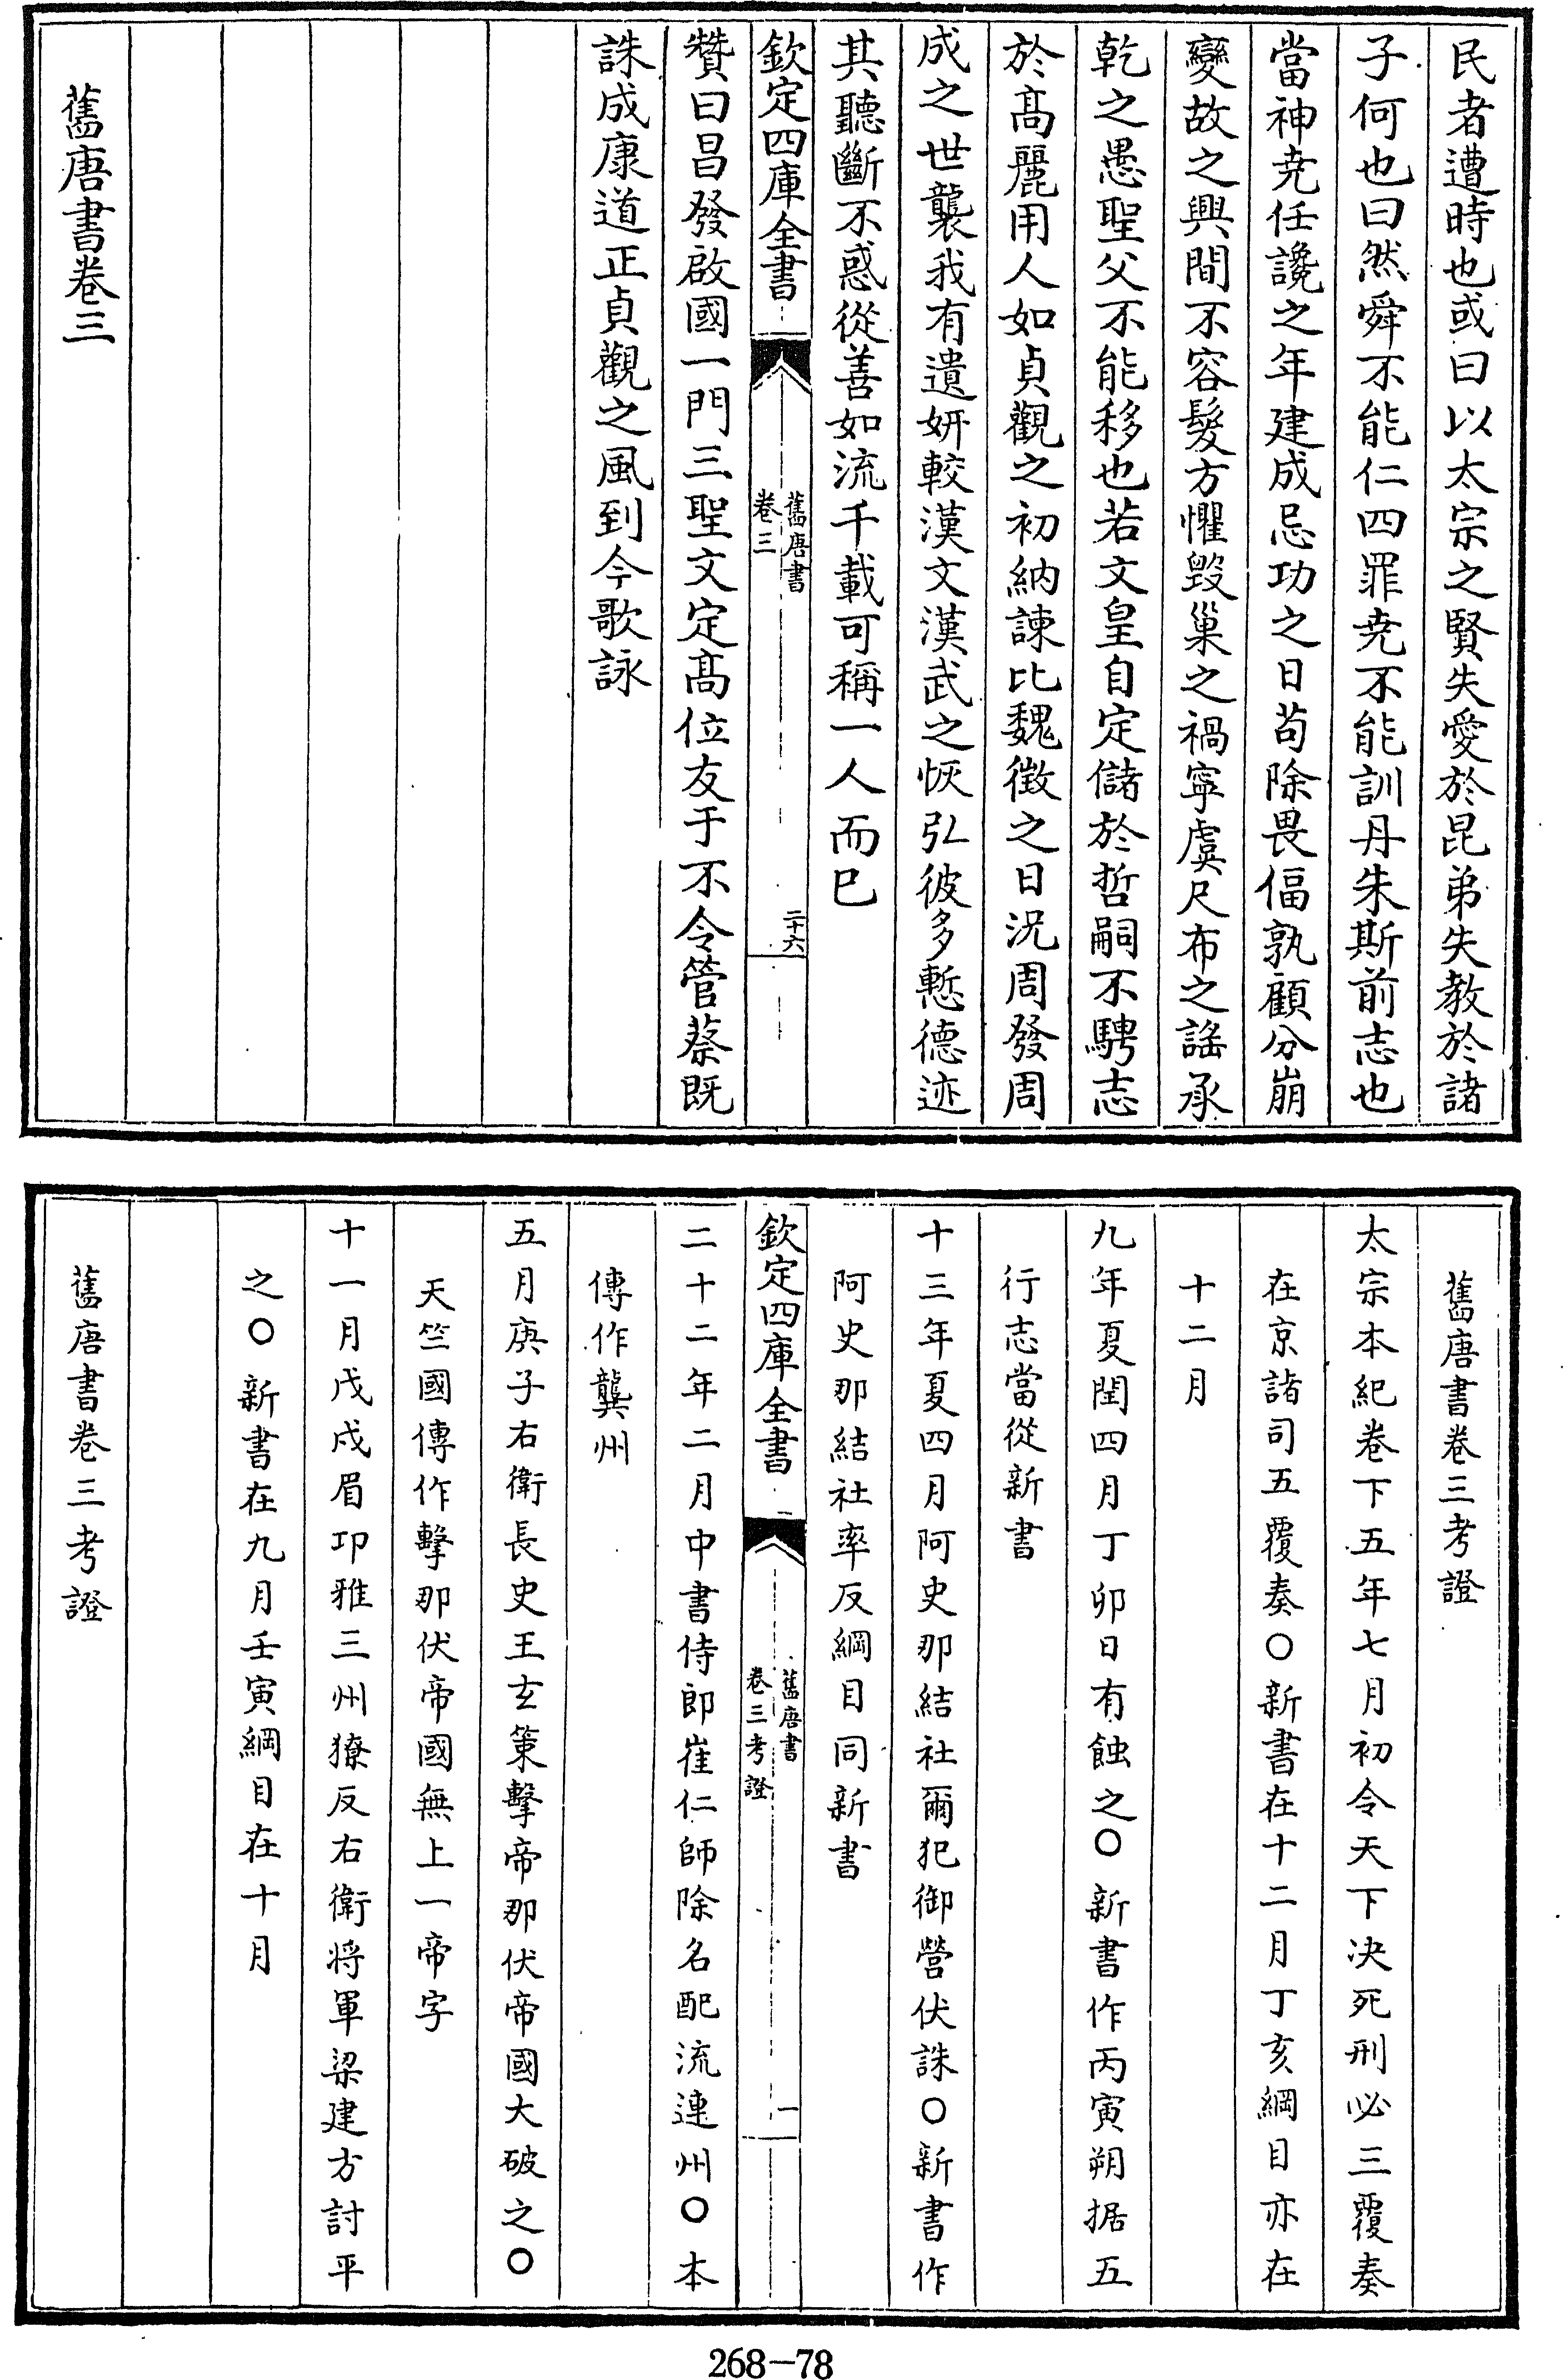 民者遭時也或曰以太宗之賢失愛於昆弟失教於諸
子何也曰然舜不能仁四罪尭不能訓丹朱斯前志也
當神尭任讒之年建成忌功之日苟除畏偪孰顧分崩
變故之興間不容髮方懼毁巢之禍寧虞尺布之謡承
乾之愚聖父不能移也若文皇自定儲於哲嗣不騁志
於髙麗用人如貞觀之初納諫比魏徵之日況周發周
成之世襲我有遺妍較漢文漢武之恢弘彼多慙德迹
其聽斷不惑從善如流千載可稱一人而已
欽定四庫全書
舊唐書
卷三
二十六
贊曰昌發啟國一門三聖文定髙位友于不令管蔡既
誅成康道正貞觀之風到今歌詠
舊唐書卷三
舊唐書卷三考證
太宗本紀卷下五年七月初令天下决死刑必三覆奏
在京諸司五覆奏○新書在十二月丁亥綱目亦在
十二月
九年夏閏四月丁卯日有蝕之○新書作丙寅朔据五
行志當從新書
十三年夏四月阿史那結社爾犯御營伏誅○新書作
阿史那結社率反綱目同新書
欽定四庫全書
舊唐書
卷三考證
一
二十二年二月中書侍郎崔仁師除名配流連州○本
傳作龔州
五月庚子右衛長史王玄策擊帝那伏帝國大破之○
天竺國傳作擊那伏帝國無上一帝字
十一月戊戌眉卭雅三州獠反右衛将軍梁建方討平
之○新書在九月壬寅綱目在十月
舊唐書卷三考證
268-78